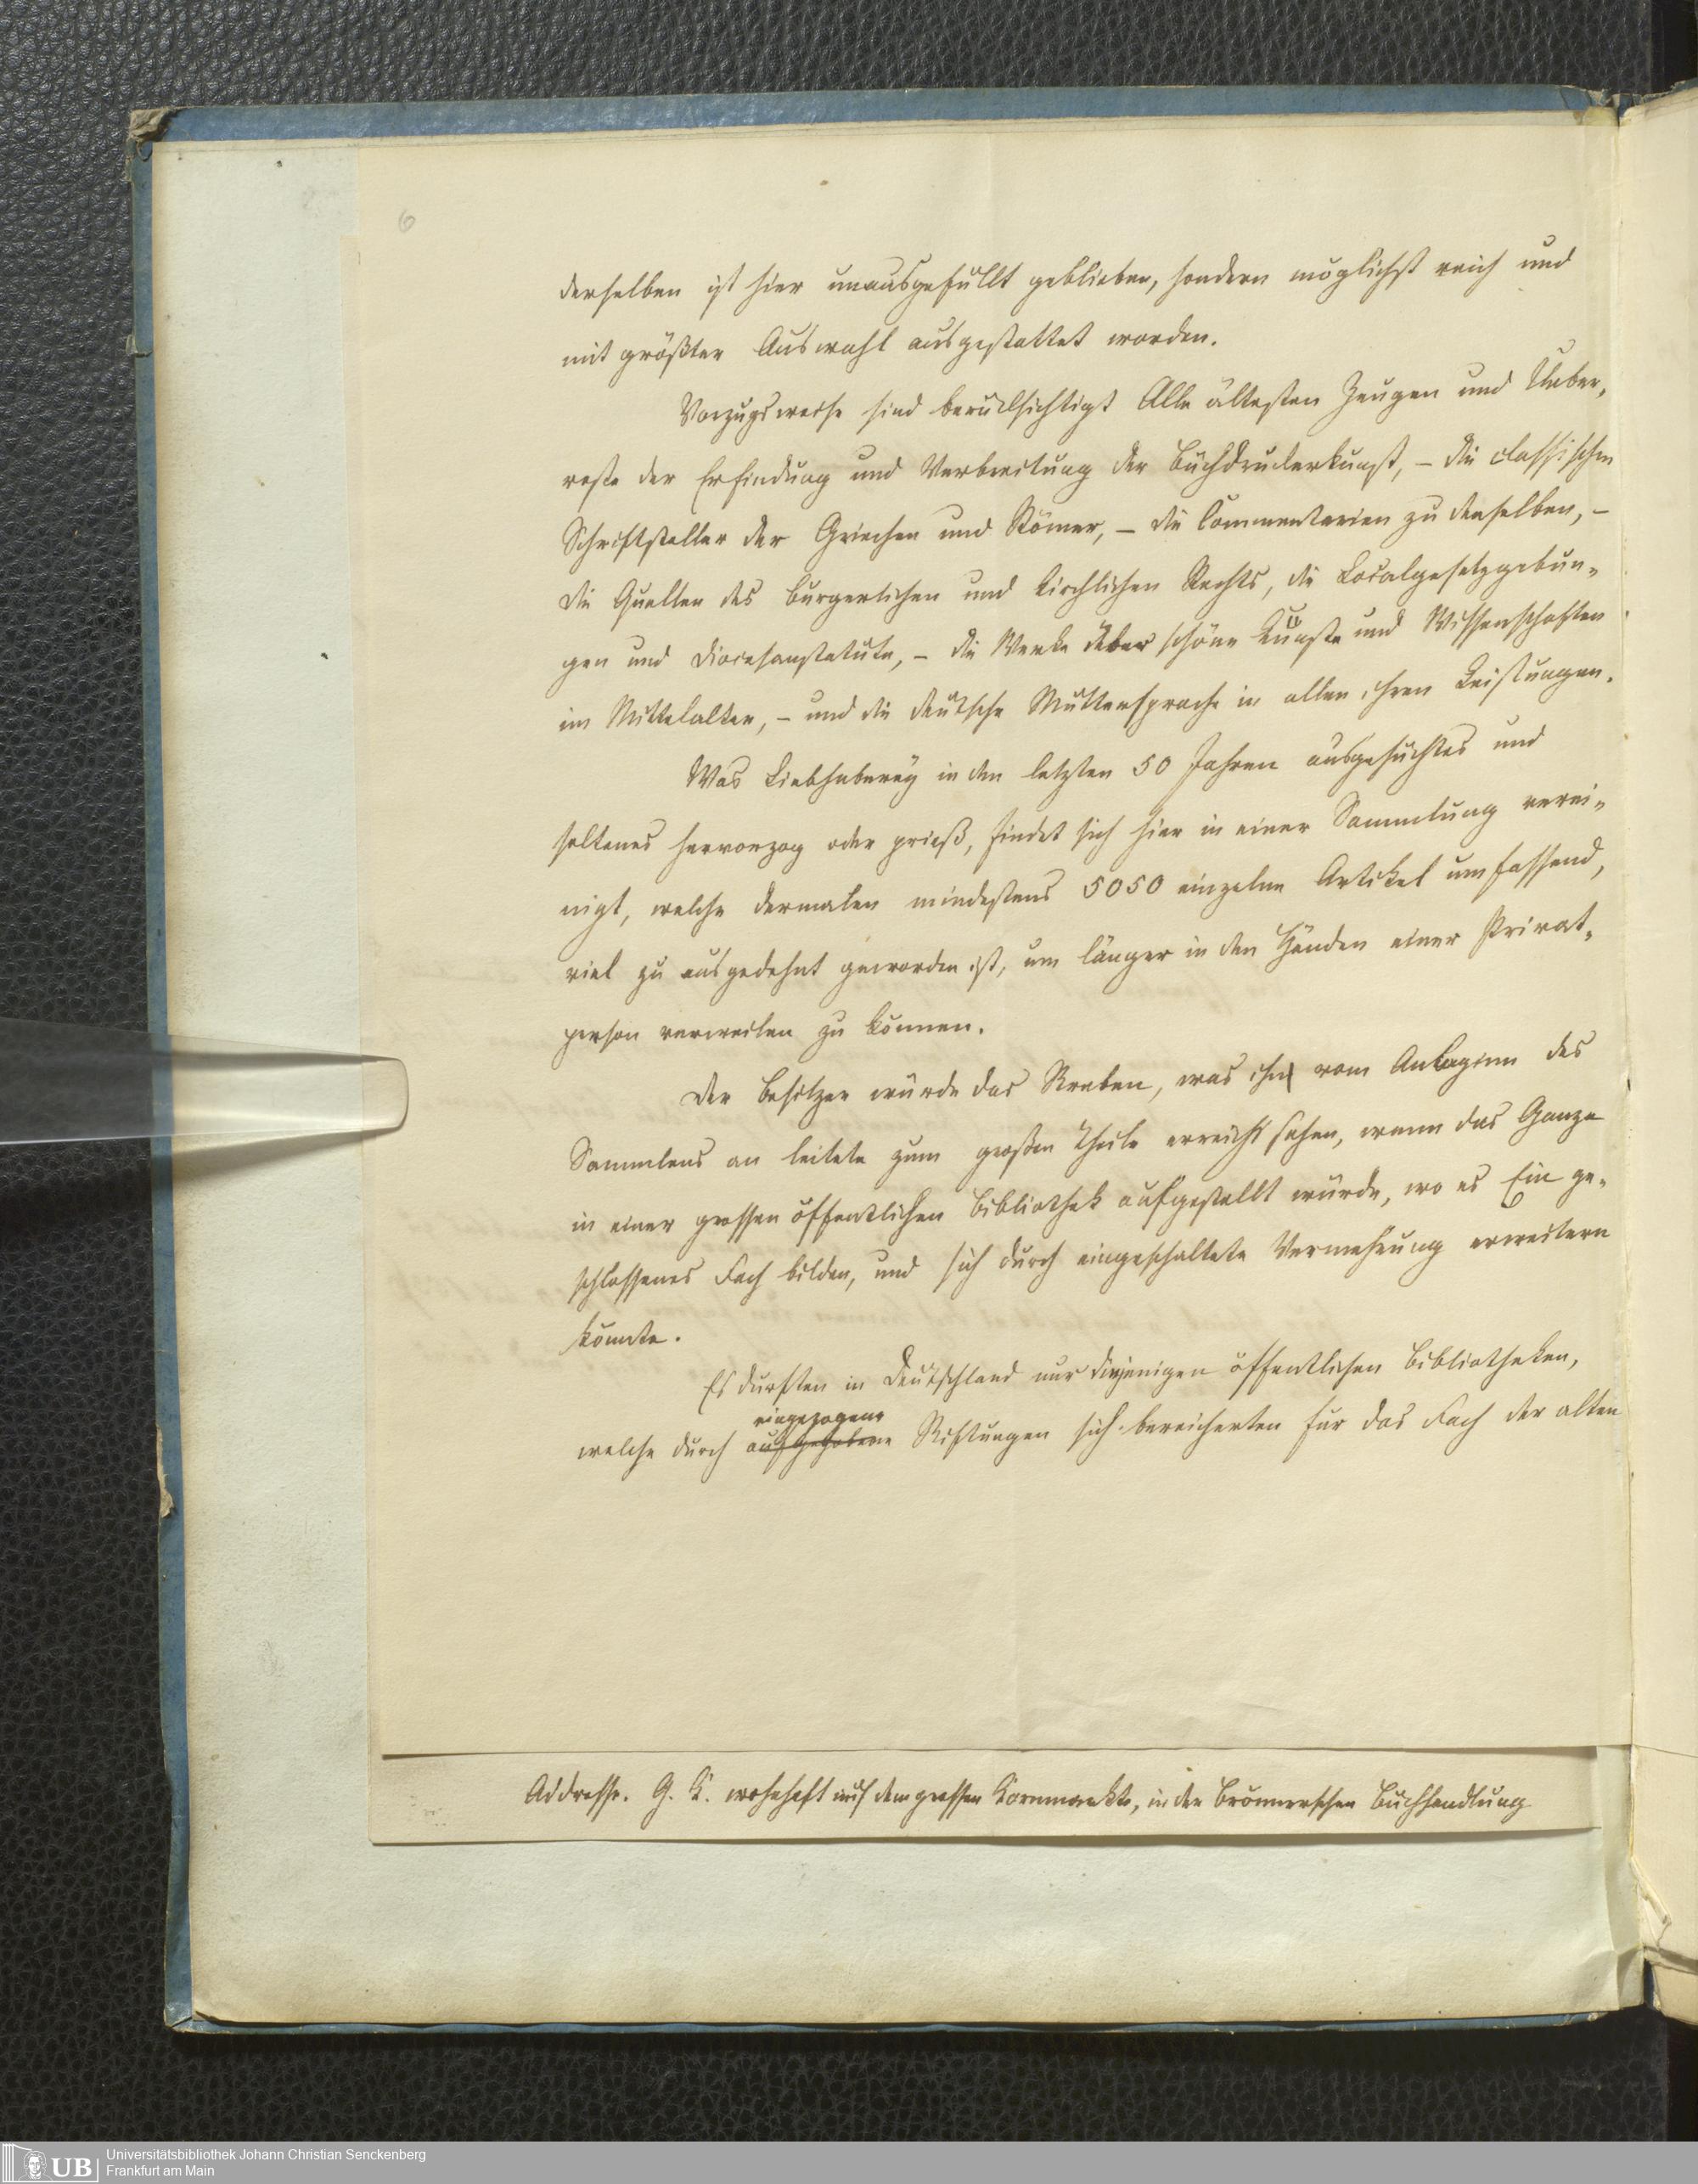 6
derselben ist hier unausgefüllt geblieben, sondern möglichst reich und
mit größter Auswahl ausgestattet worden.
Vorzugsweise sind berücksichtigt Alle ältesten Zeugen und Ueber-
reste der Erfindung und Verbreitung der Buchdruckerkunst, – die classischen
Schriftsteller der Griechen und Römer, – die Commentarien zu denselben, –
die Quellen des bürgerlichen und kirchlichen Rechts, die Localgesetzgebun-
gen und Diocesanstatute, – die Werke über schöne Künste und Wissenschaften
im Mittelalter, – und die deutsche Muttersprache in allen ihren Leistungen.
Was Liebhaberey in den letzten 50 Jahren ausgesuchtes und
seltenes hervorzog oder prieß, findet sich hier in einer Sammlung verei-
nigt, welche dermalen mindestens 5050 einzelne Artikel umfassend,
viel zu ausgedehnt geworden ist, um länger in den Händen einer Privat-
person verweilen zu können.
Der Besitzer würde das Streben, was ihn vom Anbeginn des
Sammlens an leitete zum großen Theile erreicht sehen, wenn das Ganze
in einer grossen öffentlichen Bibliothek aufgestellt würde, wo es Ein ge-
schlossenes Fach bilden, und sich durch eingeschaltete Vermehrung erweitern
könnte.
Es durften in Deutschland nur diejenigen öffentlichen Bibliotheken,
eingezogene
welche durch aufgehobene Stiftungen sich bereicherten für das Fach der alten
Addresse. G. K. wohnhaft auf dem grossen Kornmarkte, in der Brönnerschen Buchhandlung
UB
Universitätsbibliothek Johann Christian Senckenberg
Frankfurt am Main